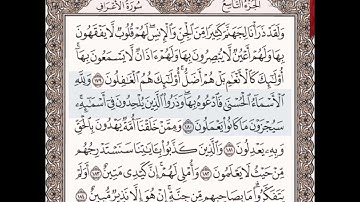 الجزء التاسع سورة الأعراف
وَلَقَدْ ذَرَأْنَا لِجَهَنَّمَ كَثِيرًا مِّنَ الْجِنِّ وَالْإِنسِ لَهُمْ قُلُوبٌ لَّا يَفْقَهُونَ
بِهَا وَلَهُمْ أَعْيُنٌ لَّا يُبْصِرُونَ بِهَا وَلَهُمْ ءَاذَانٌ لَّا يَسْمَعُونَ بِهَا
أُولَٰئِكَ كَالْأَنْعَامِ بَلْ هُمْ أَضَلُّ أُولَٰئِكَ هُمُ الْغَافِلُونَ ١٧٩ وَلِلَّهِ
الْأَسْمَاءُ الْحُسْنَىٰ فَادْعُوهُ بِهَا وَذَرُوا الَّذِينَ يُلْحِدُونَ فِي أَسْمَائِهِ
سَيُجْزَوْنَ مَا كَانُوا يَعْمَلُونَ ١٨٠ وَمِمَّنْ خَلَقْنَا أُمَّةٌ يَهْدُونَ بِالْحَقِّ
وَبِهِ يَعْدِلُونَ ١٨١ وَالَّذِينَ كَذَّبُوا بِـَٔايَاتِنَا سَنَسْتَدْرِجُهُم
مِّنْ حَيْثُ لَا يَعْلَمُونَ ١٨٢ وَأُمْلِي لَهُمْ إِنَّ كَيْدِي مَتِينٌ ١٨٣ أَوَلَمْ
يَتَفَكَّرُوا مَا بِصَاحِبِهِم مِّن جِنَّةٍ إِنْ هُوَ إِلَّا نَذِيرٌ مُّبِينٌ ١٨٤